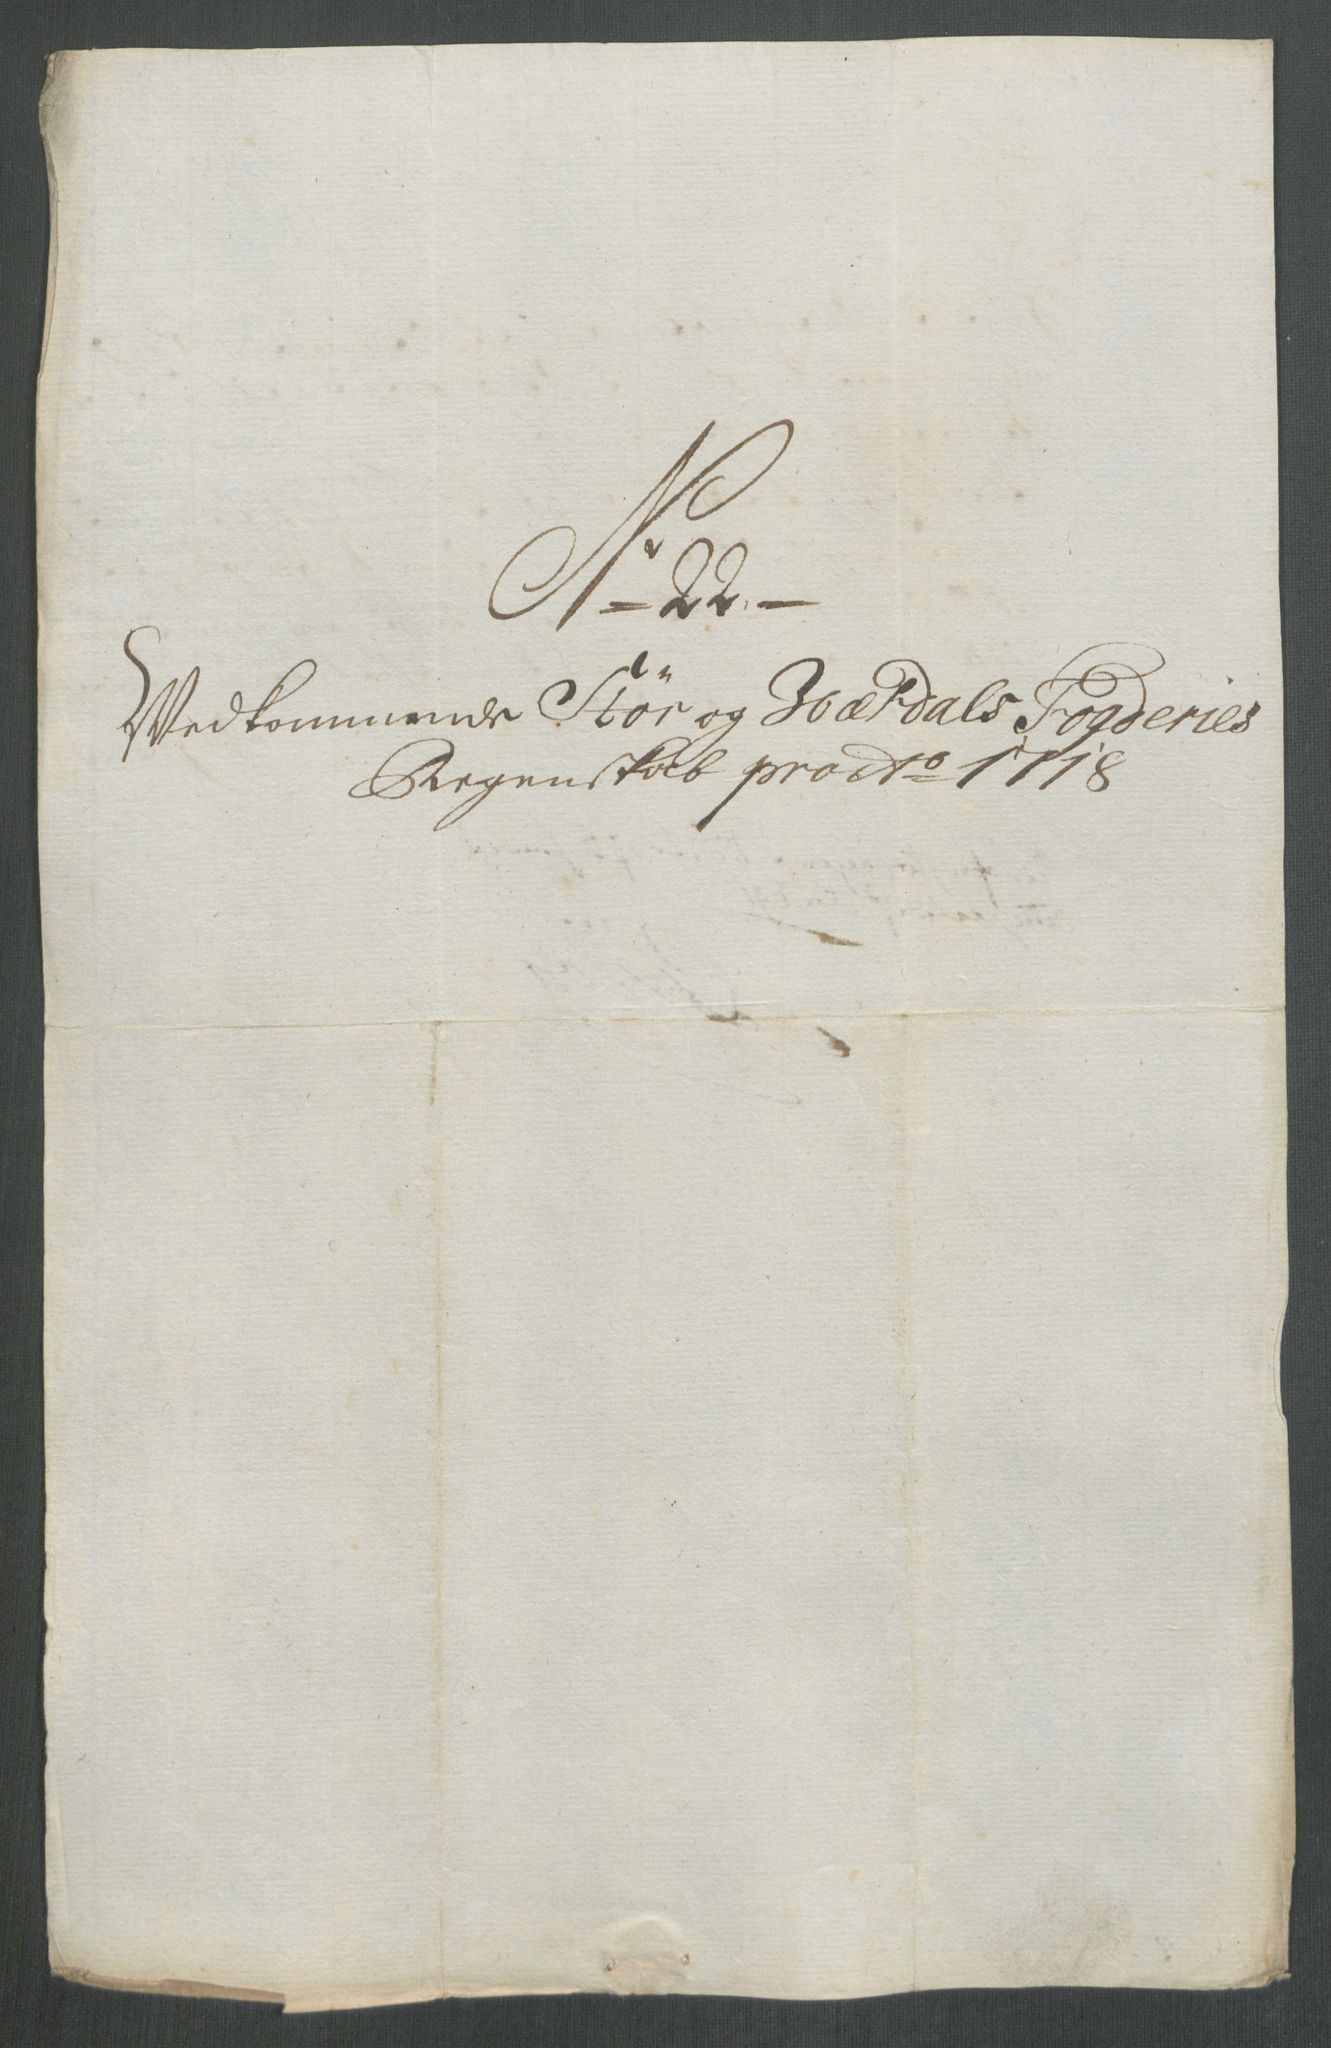 No 22.
Vedkommende Stör og Værdals Fogderies
Regenskab pro Ao 1718